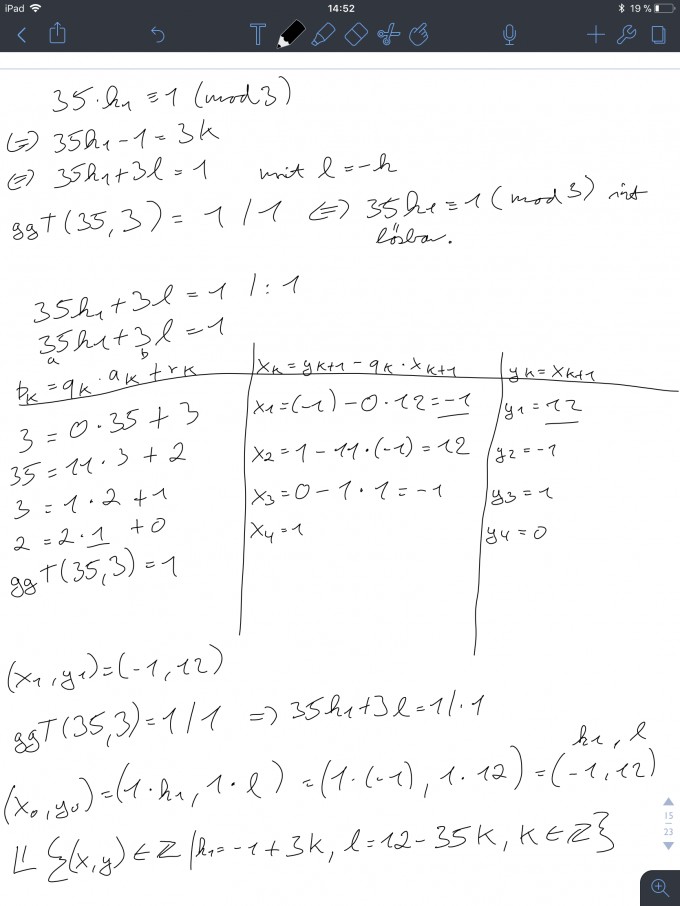 iPad 14:52 19 %
T
35·h₁ ≡ 1 (mod 3)
(=) 35h₁ - 1 = 3k
(=) 35h₁ + 3l = 1 mit l = -k
ggT(35, 3) = 1 / 1 (=) 35h₁ ≡ 1 (mod 3) ist
lösbar.
35h₁ + 3l = 1 / : 1
35h₁ + 3l = 1
a b
b_K = q_K · a_K + r_K | x_K = y_{K+1} - q_K · x_{K+1} | y_K = x_{K+1}
3 = 0 · 35 + 3 | x₁ = (-1) - 0 · 12 = -1 | y₁ = 12
35 = 11 · 3 + 2 | x₂ = 1 - 11 · (-1) = 12 | y₂ = -1
3 = 1 · 2 + 1 | x₃ = 0 - 1 · 1 = -1 | y₃ = 1
2 = 2 · 1 + 0 | x₄ = 1 | y₄ = 0
ggT(35,3) = 1
(x₁, y₁) = (-1, 12)
ggT(35,3) = 1 / 1 => 35h₁ + 3l = 1 / · 1
h₁, l
(x₀, y₀) = (1 · h₁, 1 · l) = (1 · (-1), 1 · 12) = (-1, 12)
𝕃 {(x, y) ∈ ℤ | h₁ = -1 + 3K, l = 12 - 35K, K ∈ ℤ}
15
23